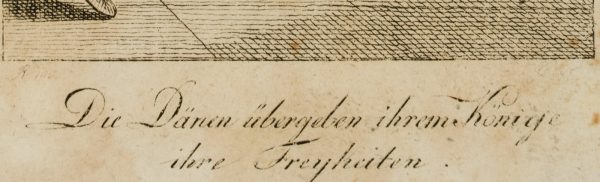 Die Dänen übergeben ihrem Könige
ihre Freyheiten.